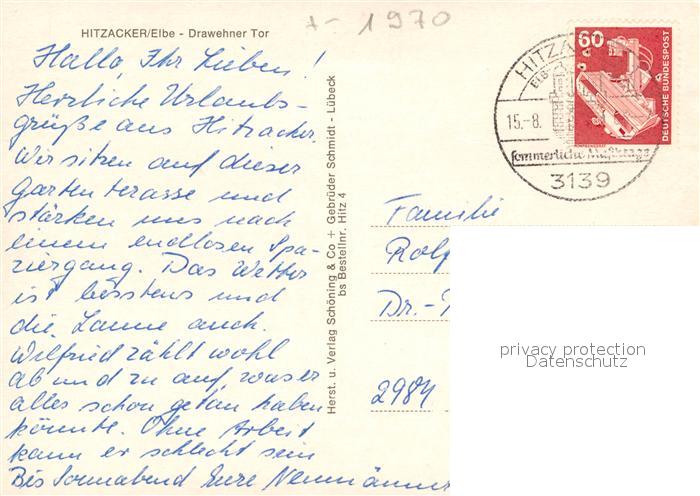 +- 1970
HITZACKER/Elbe - Drawehner Tor
Hallo, Ihr Lieben!
Herzliche Urlaubs-
grüße aus Hitzacker.
Wir sitzen auf dieser
Gartenterasse und
stärken uns nach
einem endlosen Spa-
ziergang. Das Wetter
ist bestens und
die Laune auch.
Wilfried zählt wohl
ab und zu auf, was er
alles schon getan haben
könnte. Ohne Arbeit
kann er schlecht sein
Bis Sonnabend Eure Neumänner
Herst. u. Verlag Schöning & Co + Gebrüder Schmidt - Lübeck
bs Bestellnr. Hitz 4
60
DEUTSCHE BUNDESPOST
HITZA
15.-8.
sommerliche Musiktage
3139
Familie
Rolf
Dr.-
2984
privacy protection
Datenschutz